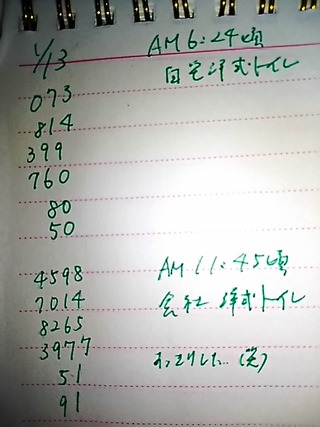 1/13 AM 6:24頃
自宅洋式トイレ
073
814
399
760
80
50
4598 AM 11:45頃
7014 会社 洋式トイレ
8265
3977 すっきりした…(笑)
51
91